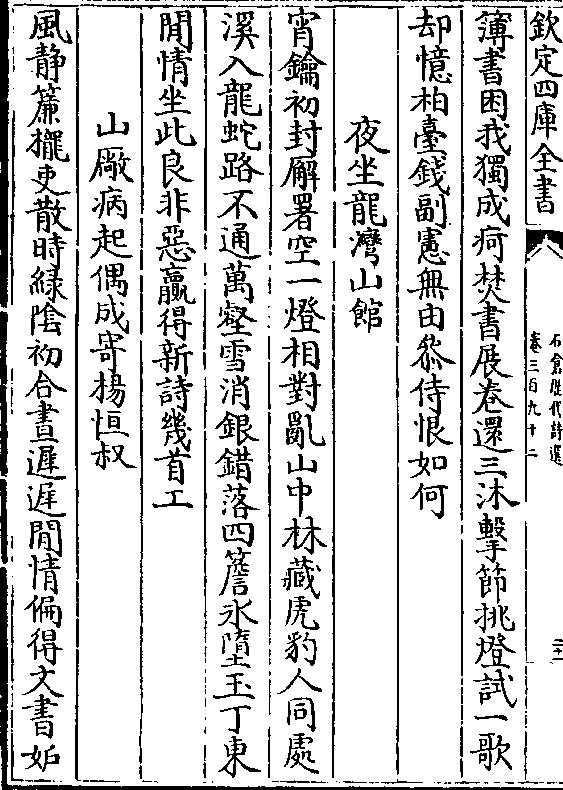 欽定四庫全書
石倉歷代詩選
卷三百九十二
二十
簿書困我獨成痾焚書展卷還三沐擊節挑燈試一歌
却憶柏臺錢副憲無由叅侍恨如何
夜坐龍灣山館
宵鑰初封廨署空一燈相對亂山中林藏虎豹人同處
溪入龍蛇路不通萬壑雪消銀錯落四簷氷墮玉丁東
閒情坐此良非惡贏得新詩幾首工
山厰病起偶成寄楊恒叔
風静簾櫳吏散時緑陰初合晝遲遲閒情偏得文書妬